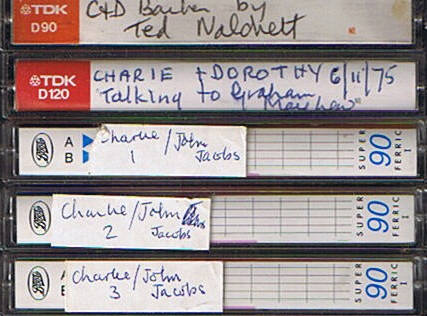 TDK
D90
C+D Barker by
Ted Nalchett
TDK
D120
CHARIE + DOROTHY 6/11/75
"Talking to Graham
Boots
A
B
Charlie/John
1 Jacobs
SUPER
90
FERRIC
I
Boots
Charlie/John
2 Jacobs
SUPER
90
FERRIC
I
Boots
A
B
Charlie/John
3 Jacobs
SUPER
90
FERRIC
I